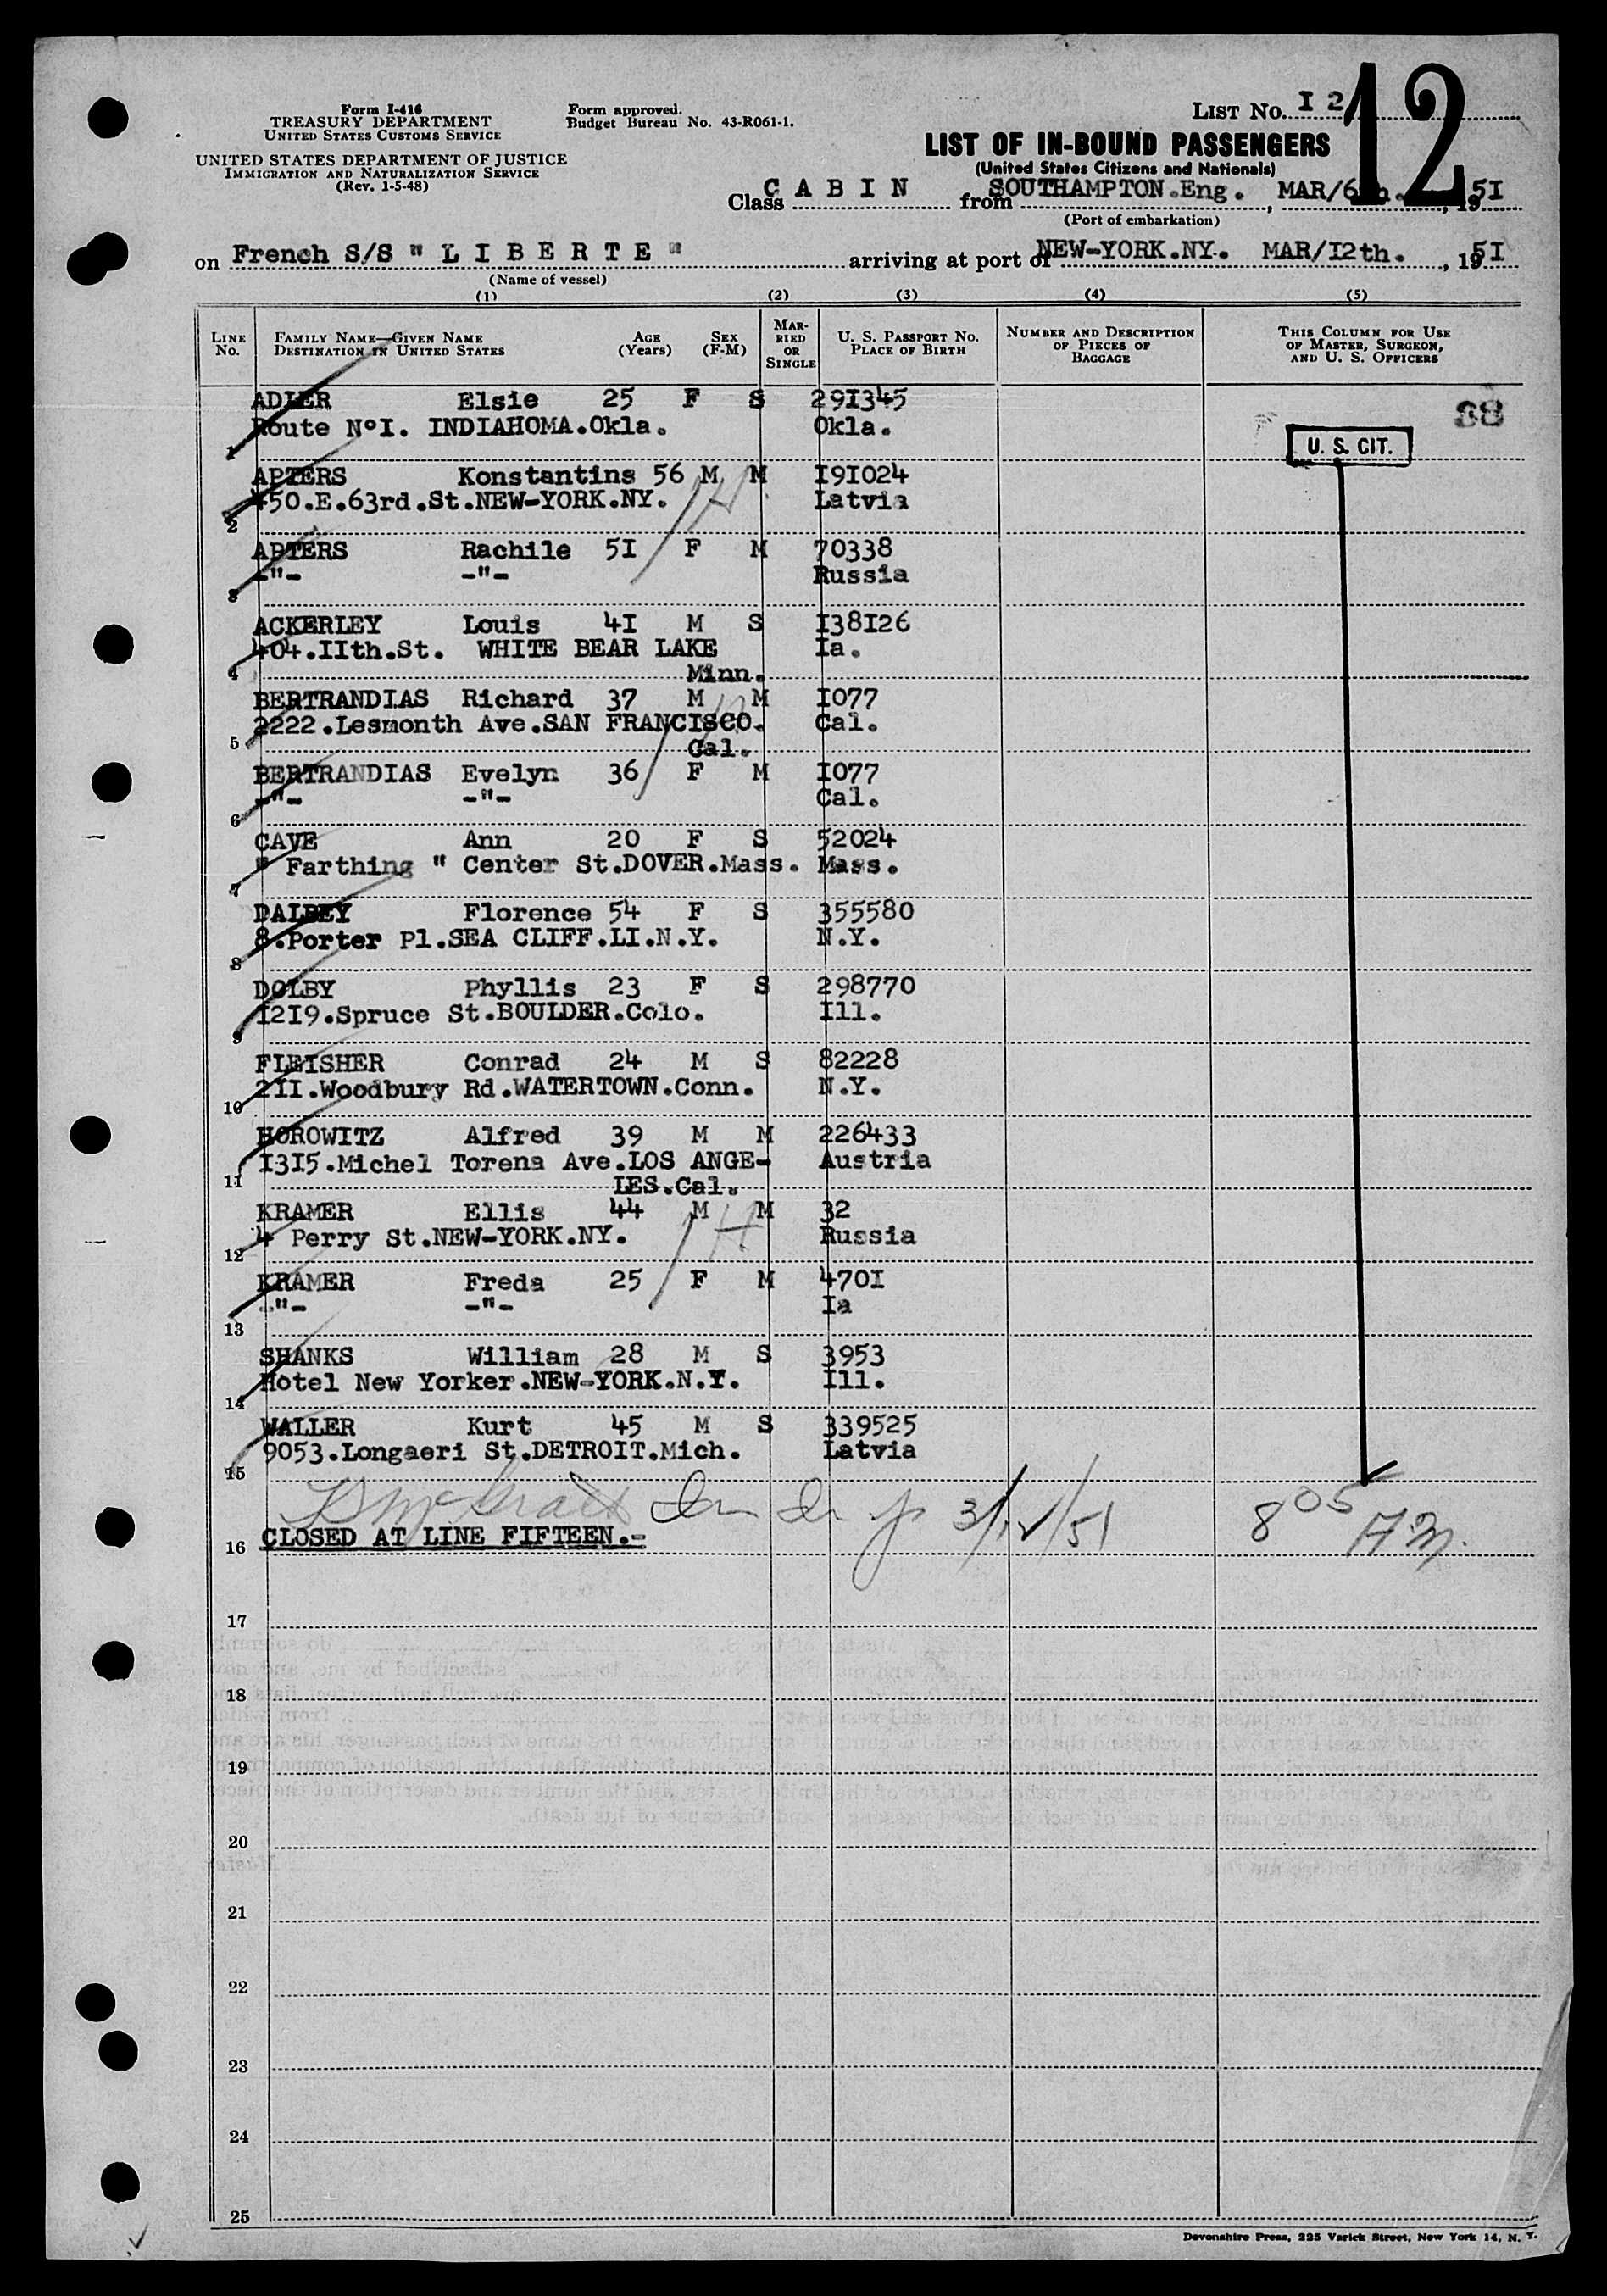 Form I-416
TREASURY DEPARTMENT
UNITED STATES CUSTOMS SERVICE
UNITED STATES DEPARTMENT OF JUSTICE
IMMIGRATION AND NATURALIZATION SERVICE
(Rev. 1-5-48)
Form approved.
Budget Bureau No. 43-R061-1.
LIST No. I 2
12
LIST OF IN-BOUND PASSENGERS
(United States Citizens and Nationals)
Class C A B I N from SOUTHAMPTON.Eng. , MAR/6th. , 195I
(Port of embarkation)
on French S/S " L I B E R T E " arriving at port of NEW-YORK.NY. MAR/I2th. , 195I
(Name of vessel)
(1) (2) (3) (4) (5)
LINE No. FAMILY NAME—GIVEN NAME DESTINATION IN UNITED STATES AGE (Years) SEX (F-M) MARRIED OR SINGLE U. S. PASSPORT No. PLACE OF BIRTH NUMBER AND DESCRIPTION OF PIECES OF BAGGAGE THIS COLUMN FOR USE OF MASTER, SURGEON, AND U. S. OFFICERS
ADLER Elsie 25 F S 29I345
88
Route N°I. INDIAHOMA.Okla. Okla.
U. S. CIT.
1
APTERS Konstantins 56 M M I9I024
450.E.63rd.St.NEW-YORK.NY. Latvia
2
APTERS Rachile 5I F M 70338
-"- -"- Russia
3
ACKERLEY Louis 4I M S I38I26
404.IIth.St. WHITE BEAR LAKE Ia.
4 Minn.
BERTRANDIAS Richard 37 M M I077
2222.Lesmonth Ave.SAN FRANCISCO. Cal.
5 Cal.
BERTRANDIAS Evelyn 36 F M I077
-"- -"- Cal.
6
CAVE Ann 20 F S 52024
" Farthing " Center St.DOVER.Mass. Mass.
7
DALBEY Florence 54 F S 355580
8.Porter Pl.SEA CLIFF.LI.N.Y. N.Y.
8
DOLBY Phyllis 23 F S 298770
I2I9.Spruce St.BOULDER.Colo. Ill.
9
FLEISHER Conrad 24 M S 82228
2II.Woodbury Rd.WATERTOWN.Conn. N.Y.
10
HOROWITZ Alfred 39 M M 226433
I3I5.Michel Torena Ave.LOS ANGE- Austria
11 LES.Cal.
KRAMER Ellis 44 M M 32
4 Perry St.NEW-YORK.NY. Russia
12
KRAMER Freda 25 F M 470I
-"- -"- Ia
13
SHANKS William 28 M S 3953
Hotel New Yorker.NEW-YORK.N.Y. Ill.
14
WALLER Kurt 45 M S 339525
9053.Longaeri St.DETROIT.Mich. Latvia
15
3/12/51 8 05 AM.
16 CLOSED AT LINE FIFTEEN.-
17
18
19
20
21
22
23
24
25
Devonshire Press, 225 Varick Street, New York 14, N. Y.